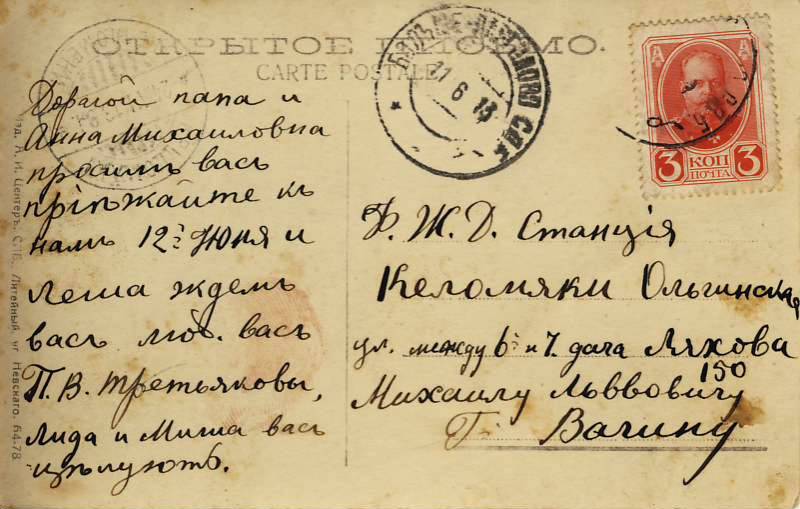 ОТКРЫТОЕ ПИСЬМО.
CARTE POSTALE
Дорогой папа и
Анна Михаиловна
просимъ васъ
пріѣжайте къ
намъ 12го Июня и
Леша ждемъ
васъ люб. васъ
П. В. Третьяковы,
Лида и Миша васъ
цѣлуютъ.
Ф. Ж. Д. Станція
Келомяки Ольгинская
ул. между 6й и 7. дача Ляхова
150
Михаилу Львовичу
Г. Вагину
А Д
3 КОП 3
ПОЧТА
21 6 13
Изд. А. И. Центеръ, С.П.Б., Литейный, уг Невскаго, 64-78